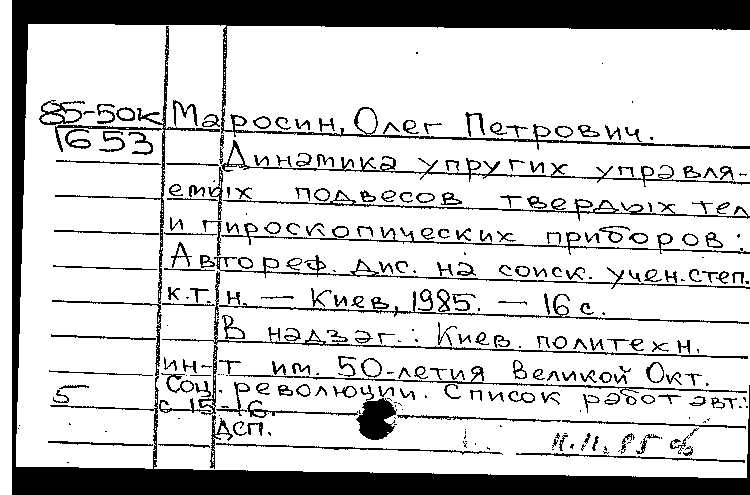 85-50к Маросин, Олег Петрович.
1653 Динамика упругих управля-
емых подвесов твердых тел
и гироскопических приборов :
Автореф. дис. на соиск. учен. степ.
к.т.н. — Киев, 1985. — 16 с.
В надзаг.: Киев. политехн.
ин-т им. 50-летия Великой Окт.
Соц. революции. Список работ авт.:
5 с 15-16.
ДСП.
11.11.85